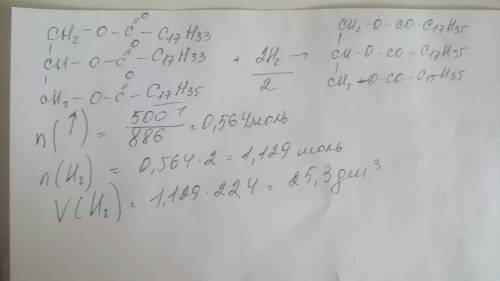 CH₂ - O - C(=O) - C₁₇H₃₃
CH - O - C(=O) - C₁₇H₃₃ + 2H₂ / 2 →
CH₂ - O - C(=O) - C₁₇H₃₅
CH₂ - O - CO · C₁₇H₃₅
CH - O - CO - C₁₇H₃₅
CH₂ - O - CO - C₁₇H₃₅
n(↑) = 500 / 886 = 0,564 моль
n(H₂) = 0,564 · 2 = 1,129 моль
V(H₂) = 1,129 · 22,4 = 25,3 дм³